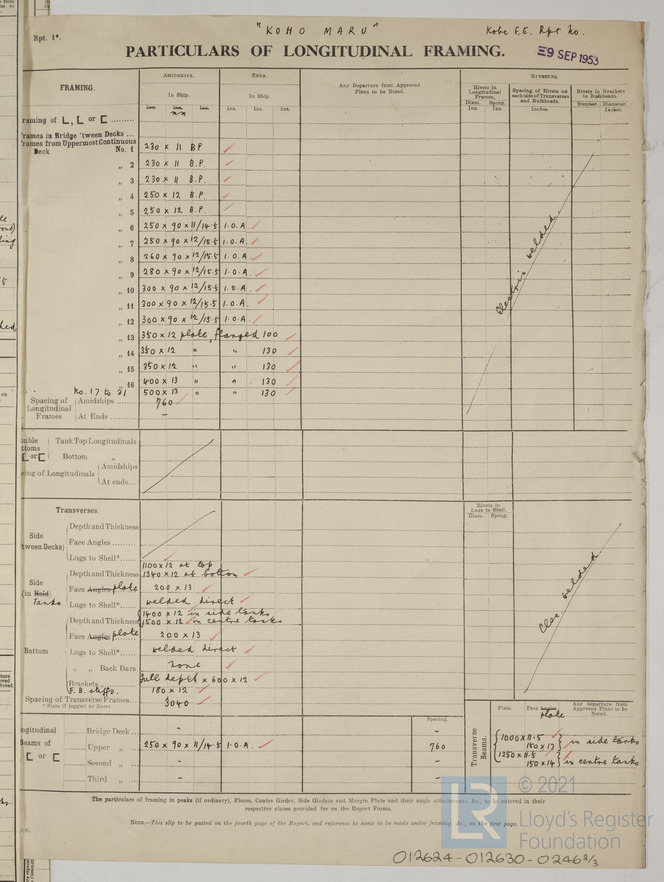 Rpt. 1*.
"KOHO MARU"
Kobe F.E. Rpt No.
PARTICULARS OF LONGITUDINAL FRAMING.
9 SEP 1953
FRAMING.
AMIDSHIPS.
ENDS.
Any Departure from Approved Plans to be Noted.
RIVETING.
In Ship.
In Ship.
Rivets in Longitudinal Frames.
Diam. Speng.
Ins. Ins.
Spacing of Rivets on each side of Transverses and Bulkheads.
Inches.
Rivets in Brackets to Bulkheads.
Number. Diameter.
Ins. Ins. Ins. Ins. Ins. Ins.
raming of L, L or [
rames in Bridge 'tween Decks ...
rames from Uppermost Continuous
Deck No. 1 230 x 11 B.P.
„ 2 230 x 11 B.P.
„ 3 230 x 11 B.P.
„ 4 250 x 12 B.P.
„ 5 250 x 12 B.P.
„ 6 250 x 90 x 11/14.5 I.O.A.
„ 7 250 x 90 x 12/15.5 I.O.A.
„ 8 260 x 90 x 12/15.5 I.O.A
„ 9 280 x 90 x 12/15.5 I.O.A.
„ 10 300 x 90 x 12/15.5 I.O.A.
„ 11 300 x 90 x 12/15.5 I.O.A.
„ 12 300 x 90 x 12/15.5 I.O.A.
„ 13 350 x 12 plate, flanged 100
„ 14 350 x 12 " " 130
„ 15 350 x 12 " " 130
„ 16 400 x 13 " " 130
No. 17 to 21 500 x 13 " " 130
Electric welded.
Spacing of Longitudinal Frames
Amidships ...... 760
At Ends ...... -
uble
ttoms
[ or [
Tank Top Longitudinals
Bottom „
ing of Longitudinals
Amidships
At ends...
Transverses.
Rivets in Lugs to Shell.
Diam. Speng.
Side
tween Decks)
Depth and Thickness
Face Angles
Lugs to Shell*
Side
(in Hold)
Tanks
Depth and Thickness 1100 x 12 at top
1240 x 12 at bottom
Face Angles plate 200 x 13
Lugs to Shell* welded direct
Bottom
Depth and Thickness 1400 x 12 in side tanks
1500 x 12 in centre tanks
Face Angles plate 200 x 13
Lugs to Shell* welded direct
„ „ Back Bars none
Brackets full depth x 600 x 12
F.B. stiffs. 180 x 12
Spacing of Transverse Frames 3040
* State if joggled or liners.
Elec welded.
ngitudinal
Beams of
[ or [
Spacing.
Bridge Deck - -
Upper „ 250 x 90 x 11/14.5 I.O.A. 760
Second „ - -
Third „ - -
Transverse Beams.
Plate. Face Angles plate
Any departure from Approved Plans to be Noted.
1000 x 11.5
150 x 13 in side tanks
1250 x 11.5
150 x 14 in centre tanks
The particulars of framing in peaks (if ordinary), Floors, Centre Girder, Side Girders and Margin Plate and their angle attachments, &c., to be entered in their
respective places provided for on the Report Forms.
NOTE.—This slip to be posted on the fourth page of the Report, and reference to same to be made under framing, &c., on the first page.
© 2021
LR
Lloyd's Register
Foundation
012624-012630-0246 2/3